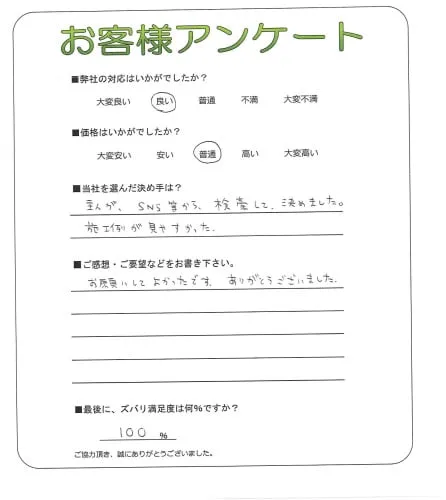 お客様アンケート
■弊社の対応はいかがでしたか？
大変良い 良い 普通 不満 大変不満
■価格はいかがでしたか？
大変安い 安い 普通 高い 大変高い
■当社を選んだ決め手は？
まんが、SNS等から、検索して、決めました。
施工例が見やすかった。
■ご感想・ご要望などをお書き下さい。
お願いしてよかったです。ありがとうございました。
■最後に、ズバリ満足度は何%ですか？
100 %
ご協力頂き、誠にありがとうございました。